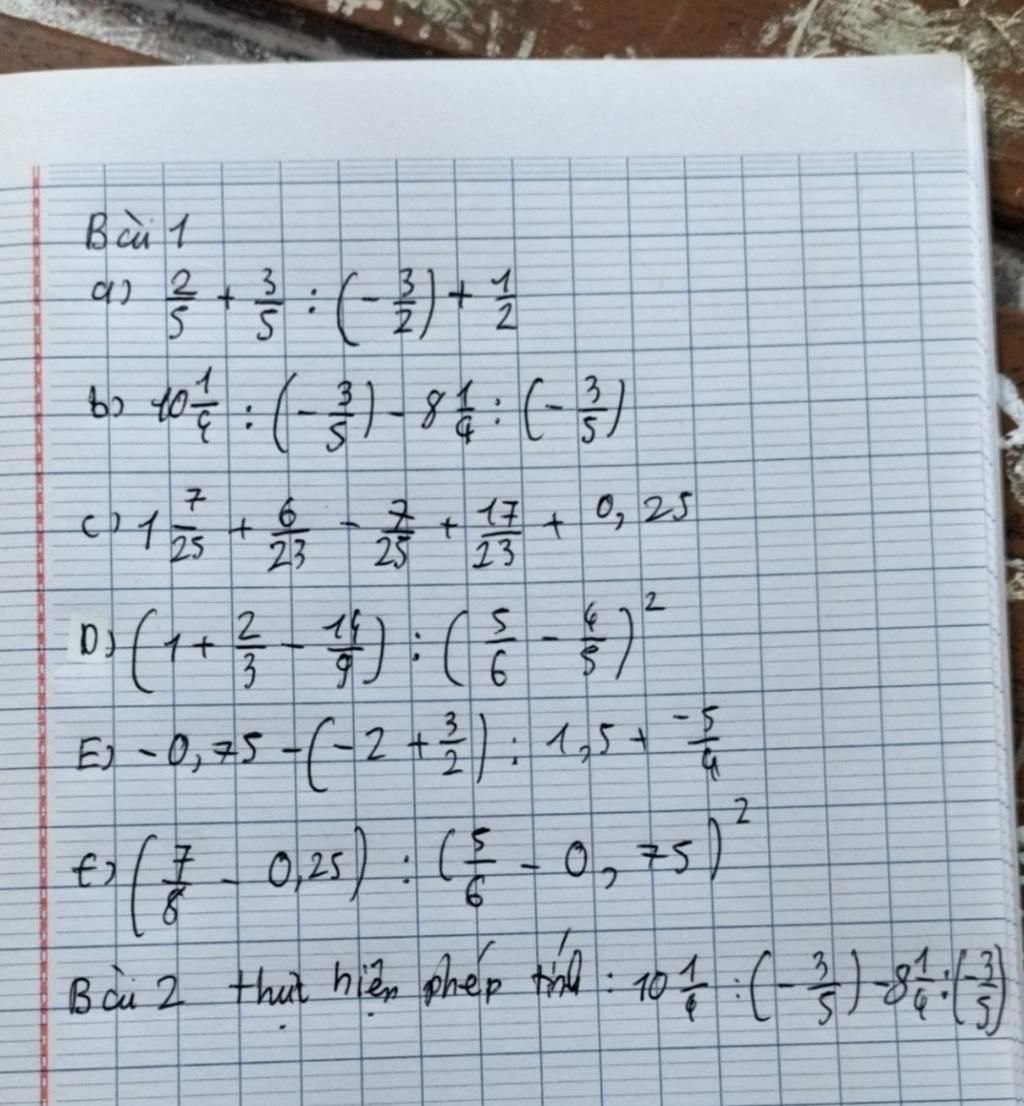 Bài 1
a) 2/5 + 3/5 : (- 3/2) + 1/2
b) 10 1/4 : (- 3/5) - 8 1/4 : (- 3/5)
c) 1 7/25 + 6/23 - 7/25 + 17/23 + 0,25
D) (1 + 2/3 - 14/9) : (5/6 - 4/5)²
E) - 0,75 - (- 2 + 3/2) : 1,5 + -5/4
f) (7/8 - 0,25) : (5/6 - 0,75)²
Bài 2 thực hiện phép tính : 10 1/4 : (- 3/5) - 8 1/4 : (-3/5)